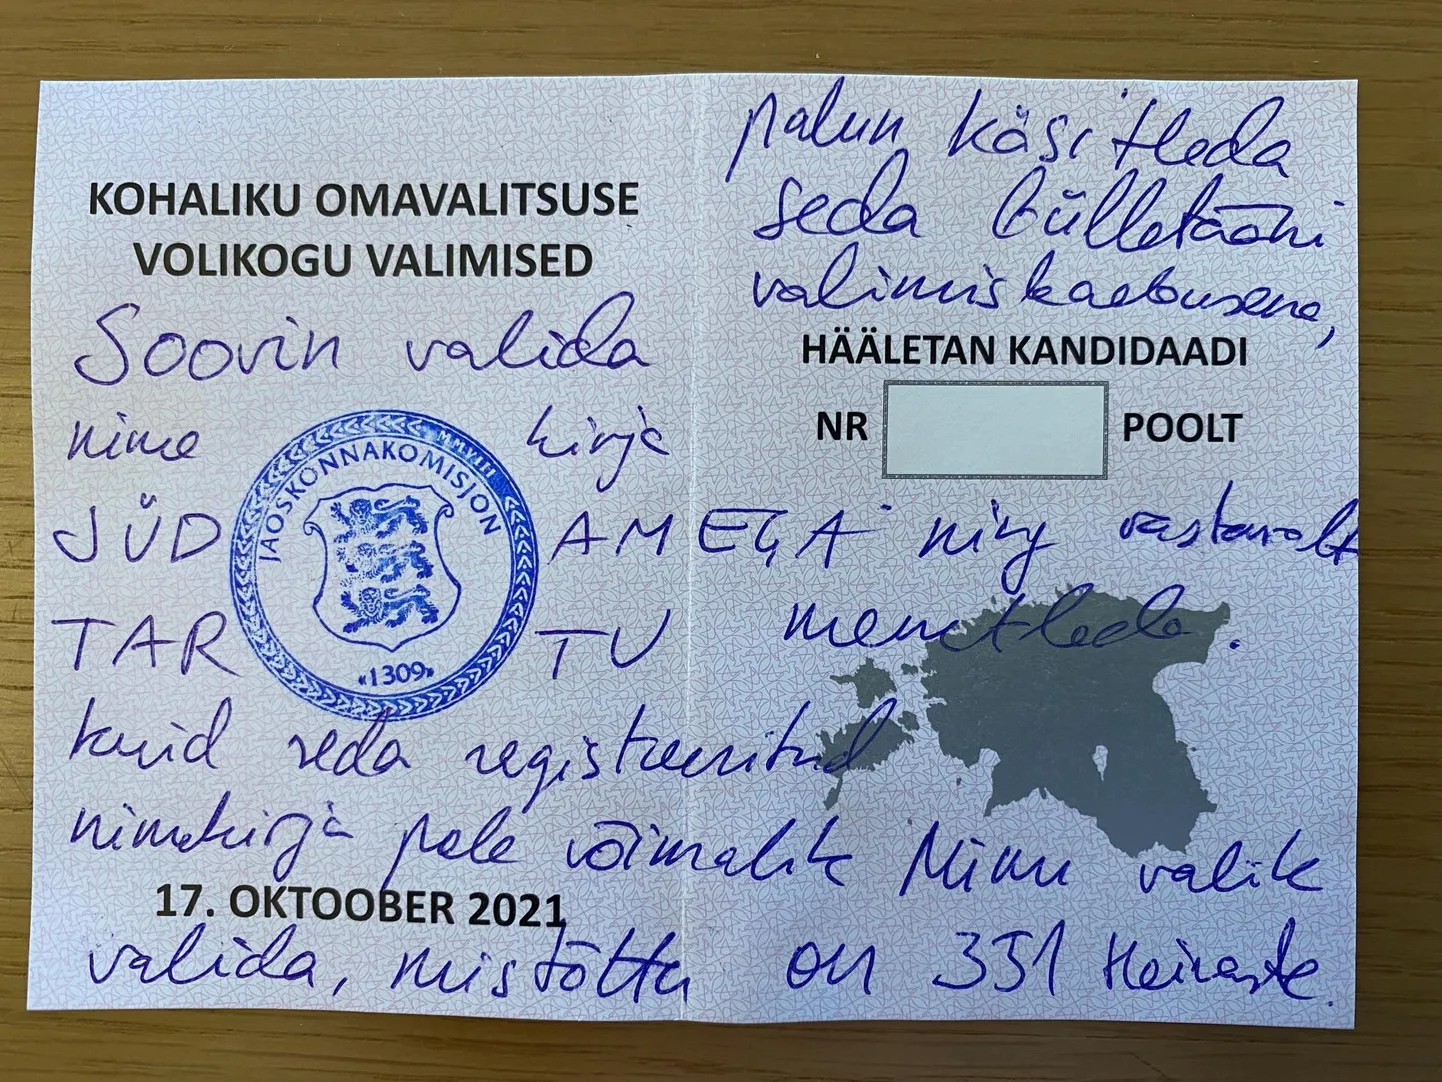 KOHALIKU OMAVALITSUSE
VOLIKOGU VALIMISED
Soovin valida
nime kirja
JÜD AMEGA
TAR TU
kuid seda registreeritud
nimekirja pole võimalik
17. OKTOOBER 2021
valida, mistõttu
MMVIII
JAOSKONNAKOMISJON
«1309»
palun käsitleda
seda bülletääni
valimiskaebusena,
HÄÄLETAN KANDIDAADI
NR POOLT
ning vastavalt
menetleda.
Minu valik
on 351 Heinaste.